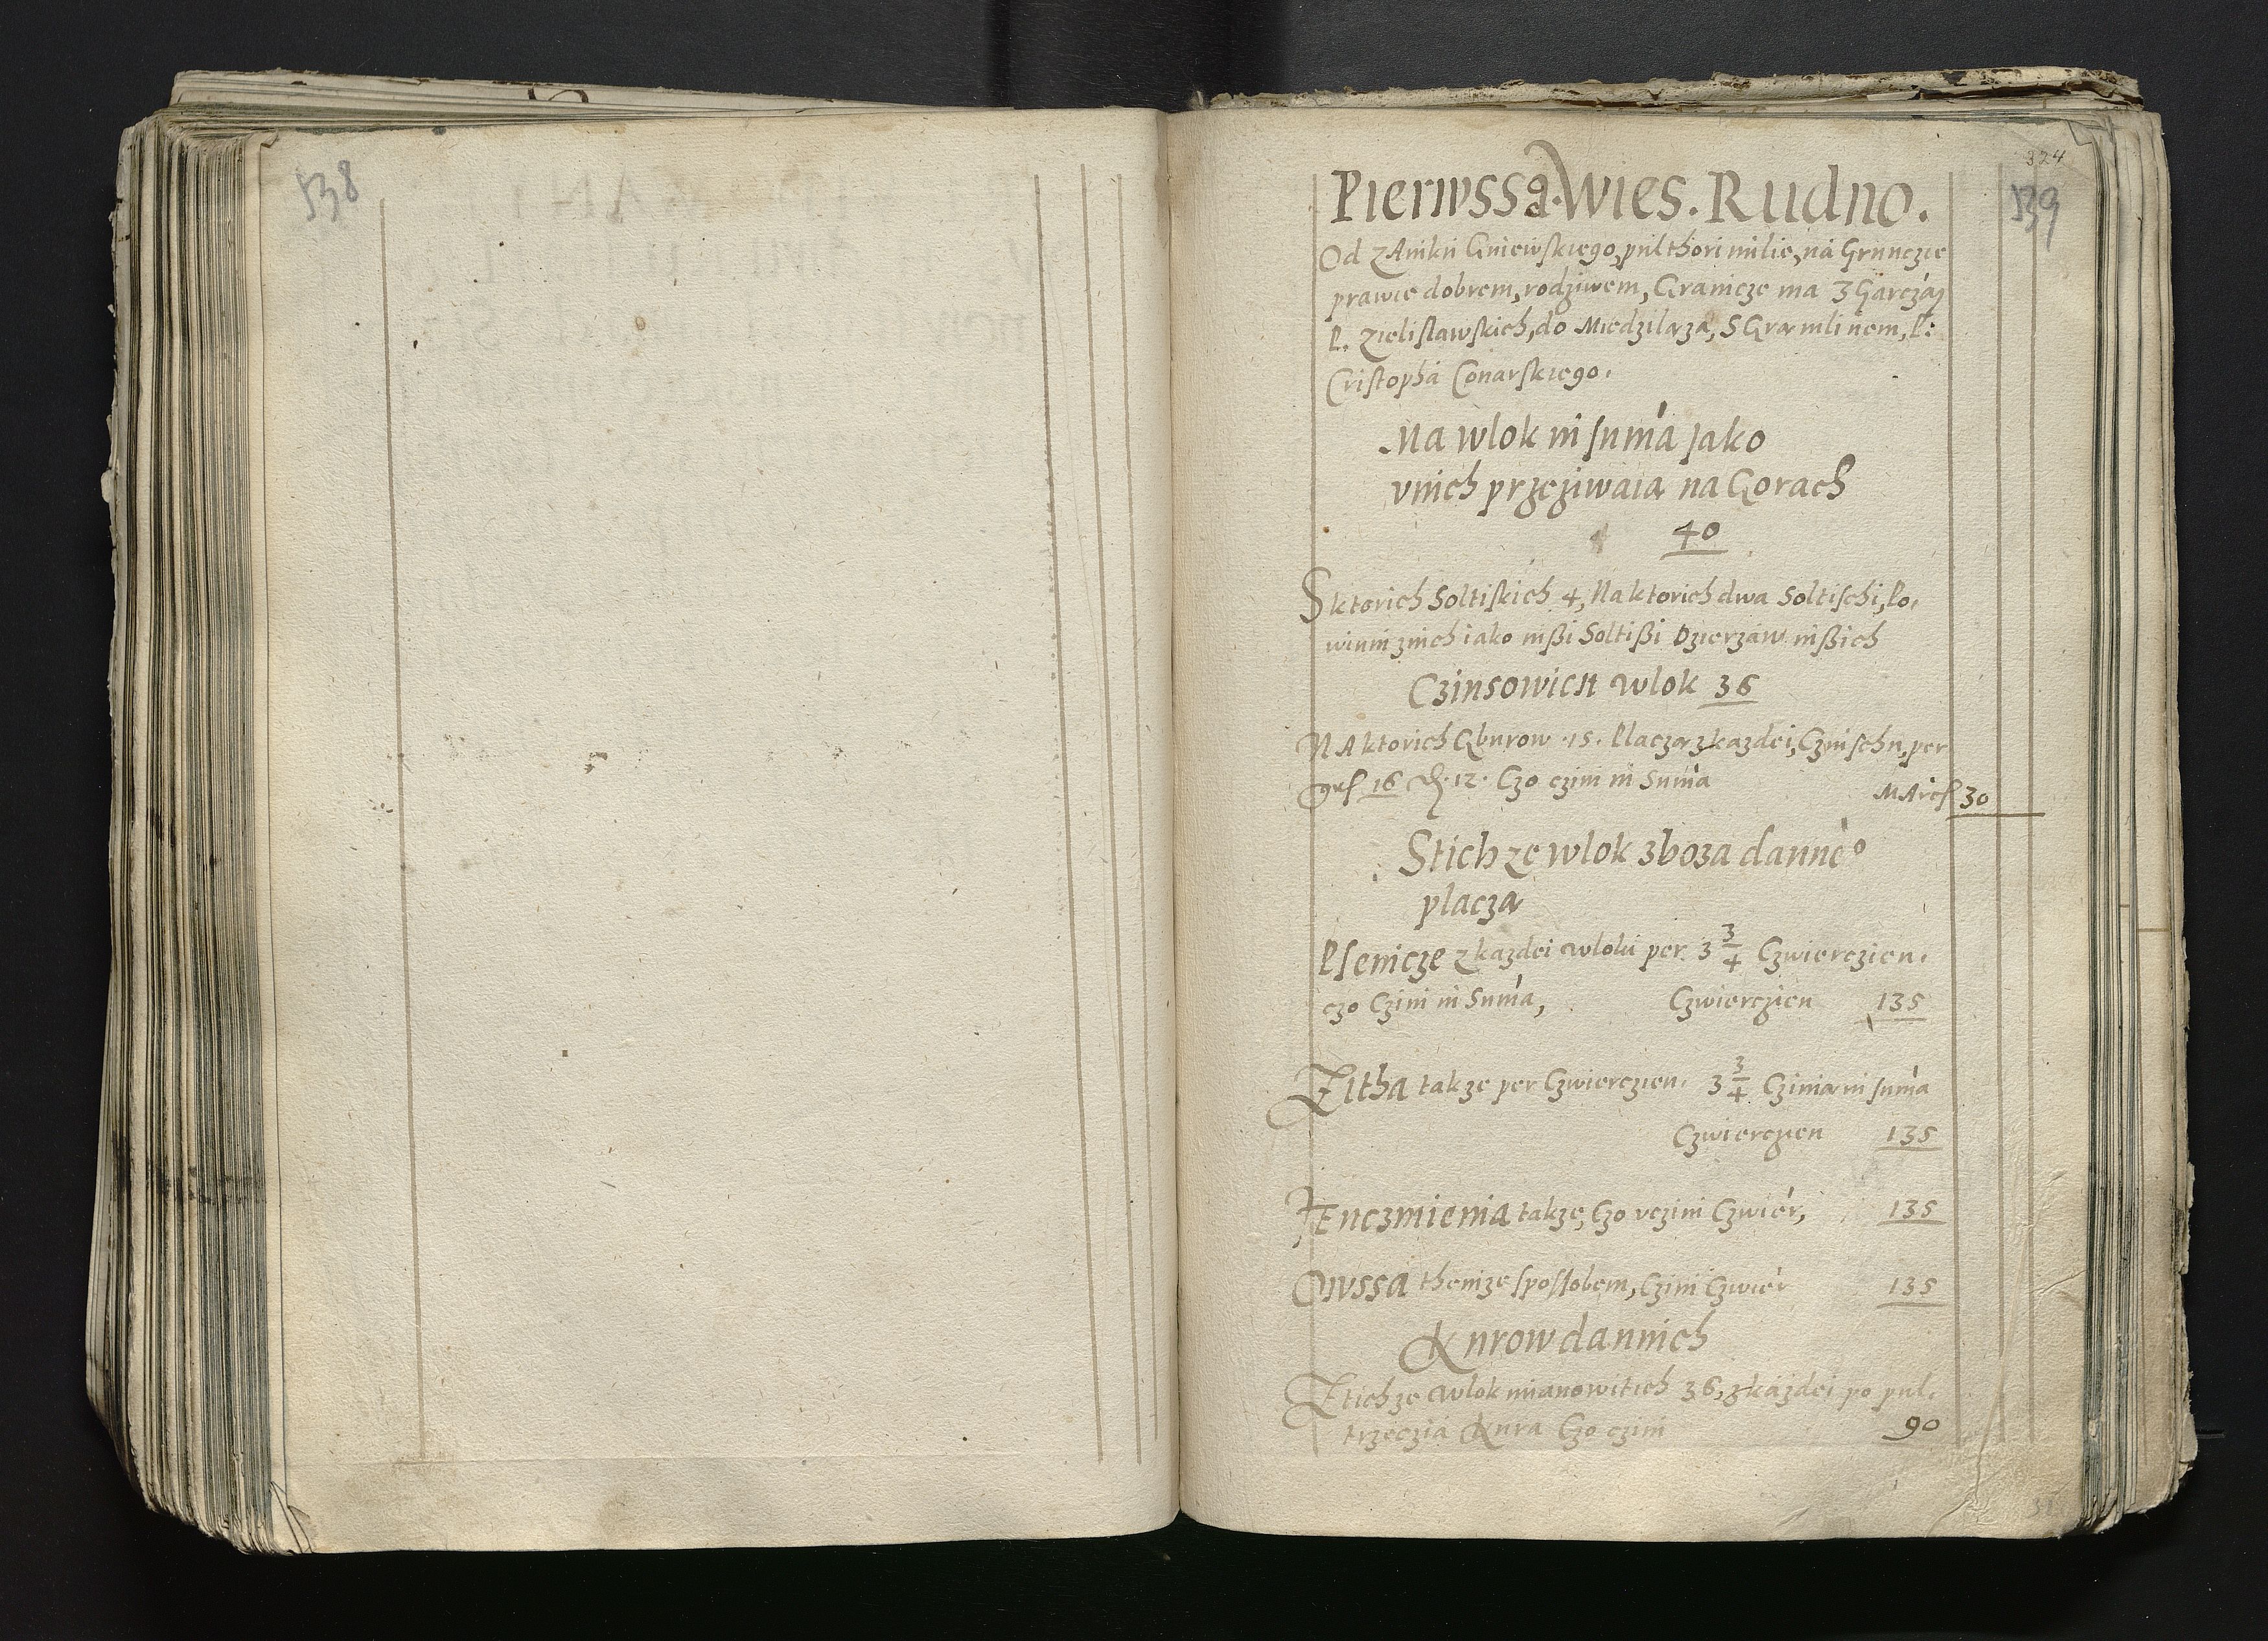 538
324
539
Pierwssa Wies. Rudno.
Od zAmku Gniewskiego, pulthori milie, na Grunczie
prawie dobrem, rodziwem, Granicze ma z Garczaȷ
P. Zielislawskich, do Miedzilęza, S Gramlinem, P:
Cristopha Conarskiego.
Na wlok in suma jako
vnich przeziwaią na Gorach
40
S ktorich Soltiskich 4, Na ktorich dwa Soltischi, Po,
winni znich iako inßi Soltißi Dzierzaw inßich
Czinsowich wlok 36
NA ktorich Gburow .15. Placzą z kazdei, Czinschu, per
grs 16 ₰ 12. Czo czini in Suma Marcs 30
Stich ze wlok zboza danneo
placzą
Psenicze z kazdei wloki per 3 3/4 Czwierczien.
czo Czini in Suma, Czwierczien 135
Zitha takze per Czwierczien. 3 3/4 Czinią in suma
Czwierczien 135
JEnczmienia takze, Czo vczini Czwier, 135
Owssa themze sposobem, Czini Czwier 135
Kurow dannich
Z tich ze wlok mianowitich 36, z kazdei po pul,
trzeczia Kura Czo czini 90